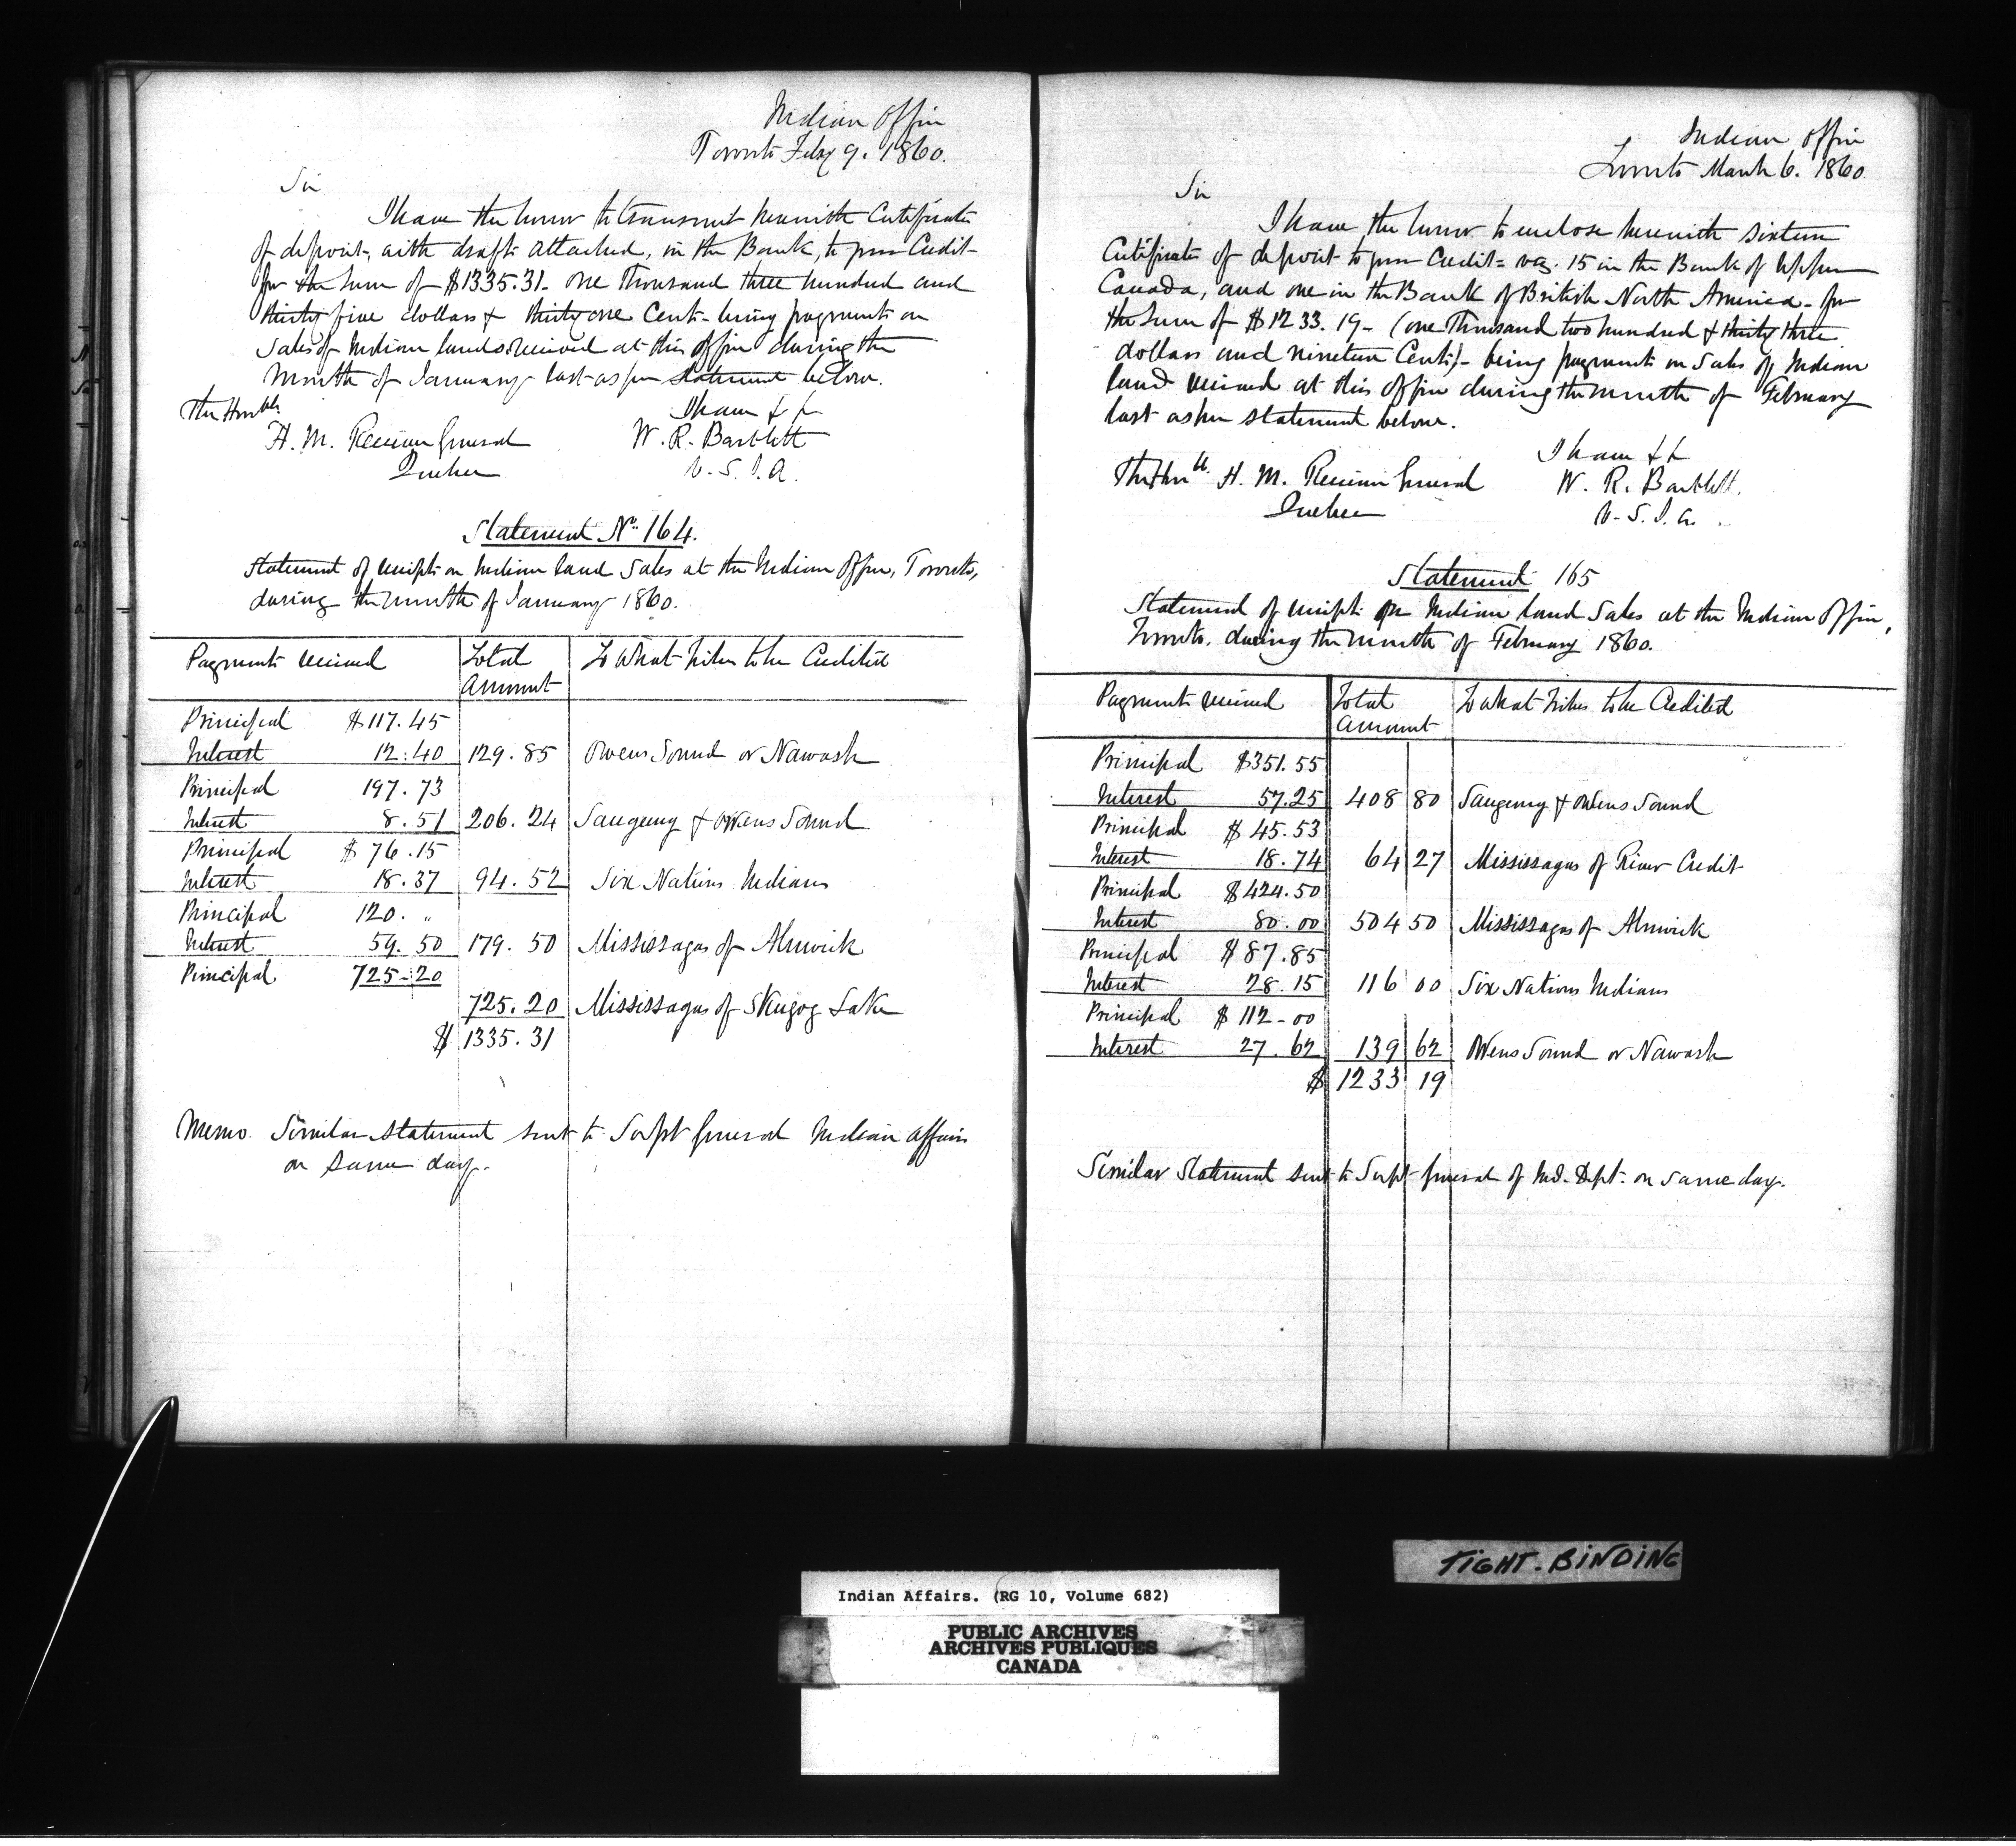 Indian Office
Toronto Feby 9. 1860.
Sir
I have the honor to transmit herewith Certificates
of deposit, with drafts attached, in the Bank, to your Credit
for the Sum of $1335.31- one Thousand three hundred and
thirty five dollars & thirty one Cents- being payments on
Sales of Indian lands received at this office during the
Month of January last as per Statement below.
The Honble.
I have &c
H. M. Receiver General
W. R. Bartlett
Quebec
V. S. I. A.
Statement No. 164.
Statement of receipts on Indian land Sales at the Indian Office, Toronto,
during the month of January 1860.
Payments received Total Amount To what Tribes to be Credited
Principal $117.45
Interest 12.40 129.85 Owens Sound or Nawash
Principal 197.73
Interest 8.51 206.24 Saugeeng & Owens Sound
Principal $ 76.15
Interest 18.37 94.52 Six Nations Indians
Principal 120. "
Interest 59.50 179.50 Mississagas of Alnwick
Principal 725-20
725.20 Mississagas of Skugog Lake
$ 1335.31
Memo. Similar Statement sent to Supt General Indian affairs
on same day.
Indian Office
Toronto March 6. 1860
Sir
I have the honor to enclose herewith sixteen
Certificates of deposit to your Credit= viz. 15 in the Bank of Upper
Canada, and one in the Bank of British North America- for
the Sum of $1233.19- (one Thousand two hundred & thirty three
dollars and nineteen Cents)- being payments on Sales of Indian
land received at this Office during the month of February
last as per statement below.
I have &c
The Honble. H. M. Receiver General
W. R. Bartlett.
Quebec
V. S. I. A.
Statement 165
Statement of receipts on Indian land Sales at the Indian Office,
Toronto. during the month of February 1860.
Payments received Total Amount To what Tribes to be Credited
Principal $351.55
Interest 57.25 408 80 Saugeeng & Owens Sound
Principal $ 45.53
Interest 18.74 64 27 Mississagas of River Credit
Principal $424.50
Interest 80.00 504 50 Mississagas of Alnwick
Principal $ 87.85
Interest 28.15 116 00 Six Nations Indians
Principal $ 112-00
Interest 27.62 139 62 Owens Sound or Nawash
$ 1233 19
Similar Statement sent to Supt General of Ind. Dept. on same day.
TIGHT. BINDING
Indian Affairs. (RG 10, Volume 682)
PUBLIC ARCHIVES
ARCHIVES PUBLIQUES
CANADA